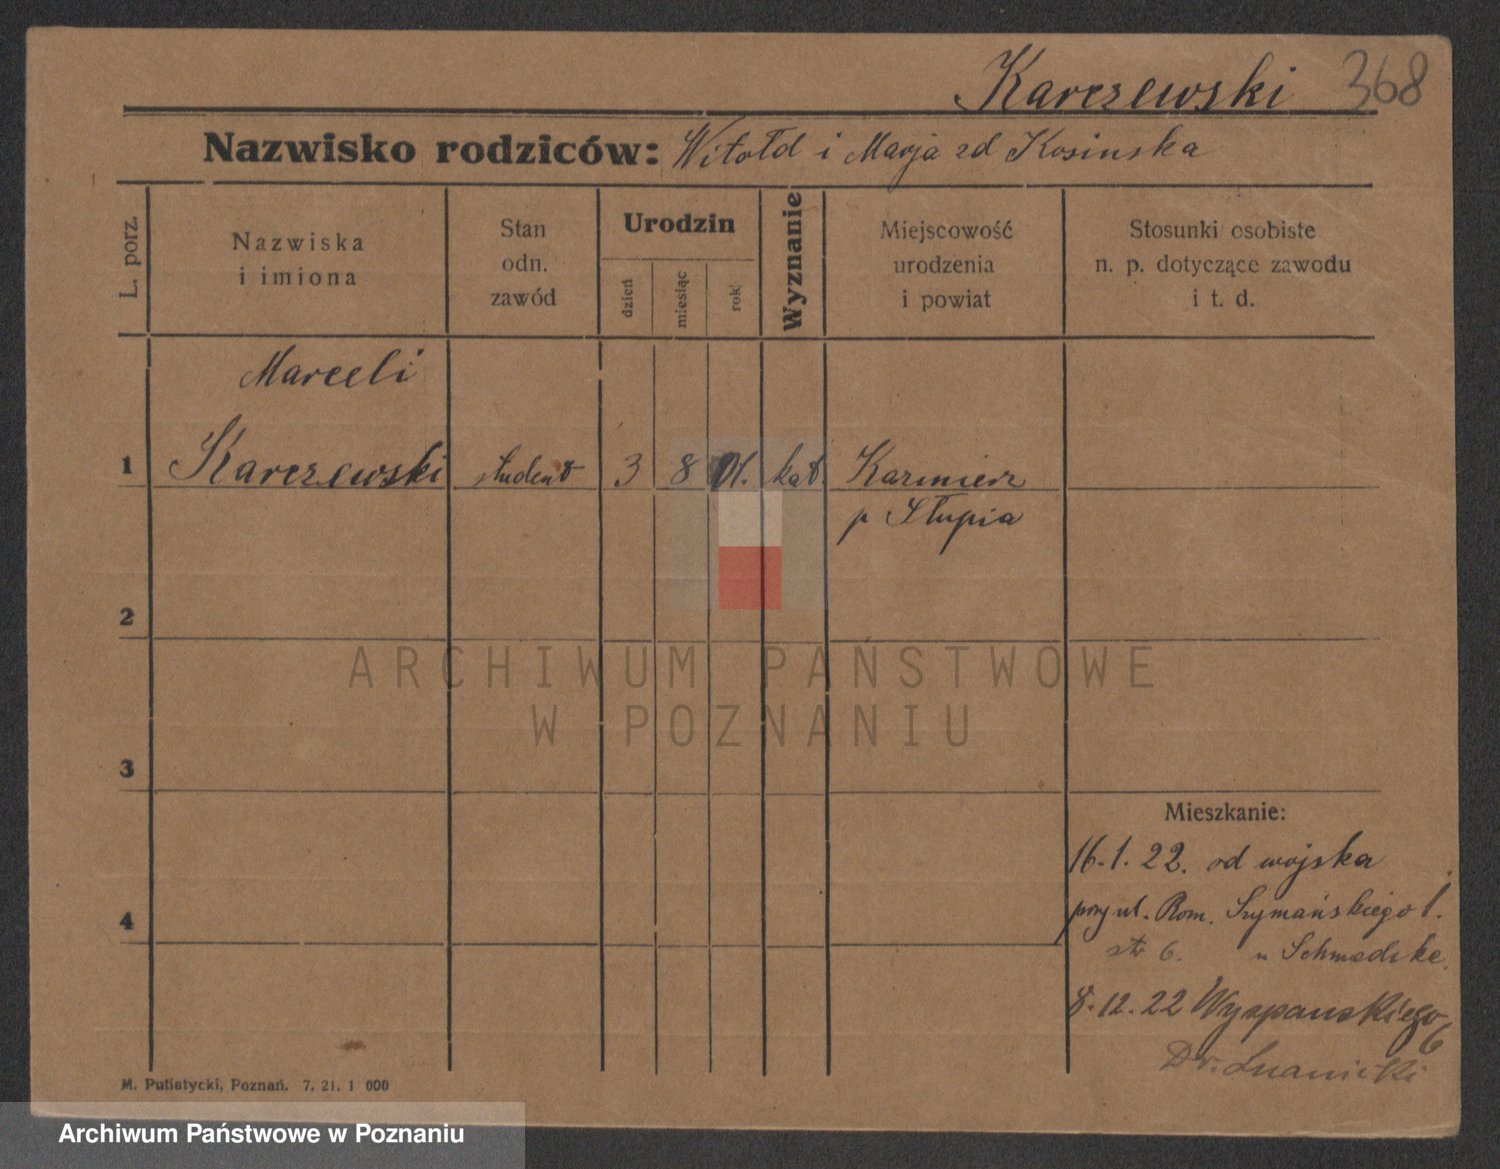 Karczewski 368
Nazwisko rodziców: Witołd i Marja zd Kosinska
L. porz.
Nazwiska
i imiona
Stan
odn.
zawód
Urodzin
dzień
miesiąc
rok
Wyznanie
Miejscowość
urodzenia
i powiat
Stosunki osobiste
n. p. dotyczące zawodu
i t. d.
Marceli
1 Karczewski student 3 8 01. kat. Kazmierz
p Słupia
2
3
4
ARCHIWUM PAŃSTWOWE
W POZNANIU
Mieszkanie:
16.1.22. od wojska
przy ul. Rom. Szymańskiego 1.
6. u Schmadtke
8.12.22 Wyspanskiego
6
Dr.
M. Putiatycki, Poznań. 7. 21. 1 000
Archiwum Państwowe w Poznaniu